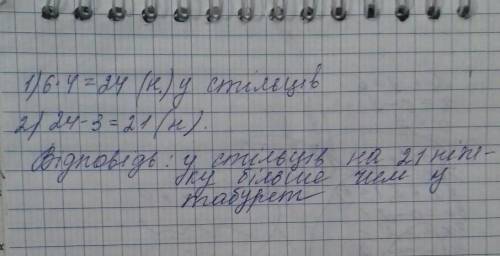 1) 6·4=24 (н) у стільців
2) 24-3=21 (н).
Відповідь: у стільців на 21 ніж-
ку більше чем у
табурет